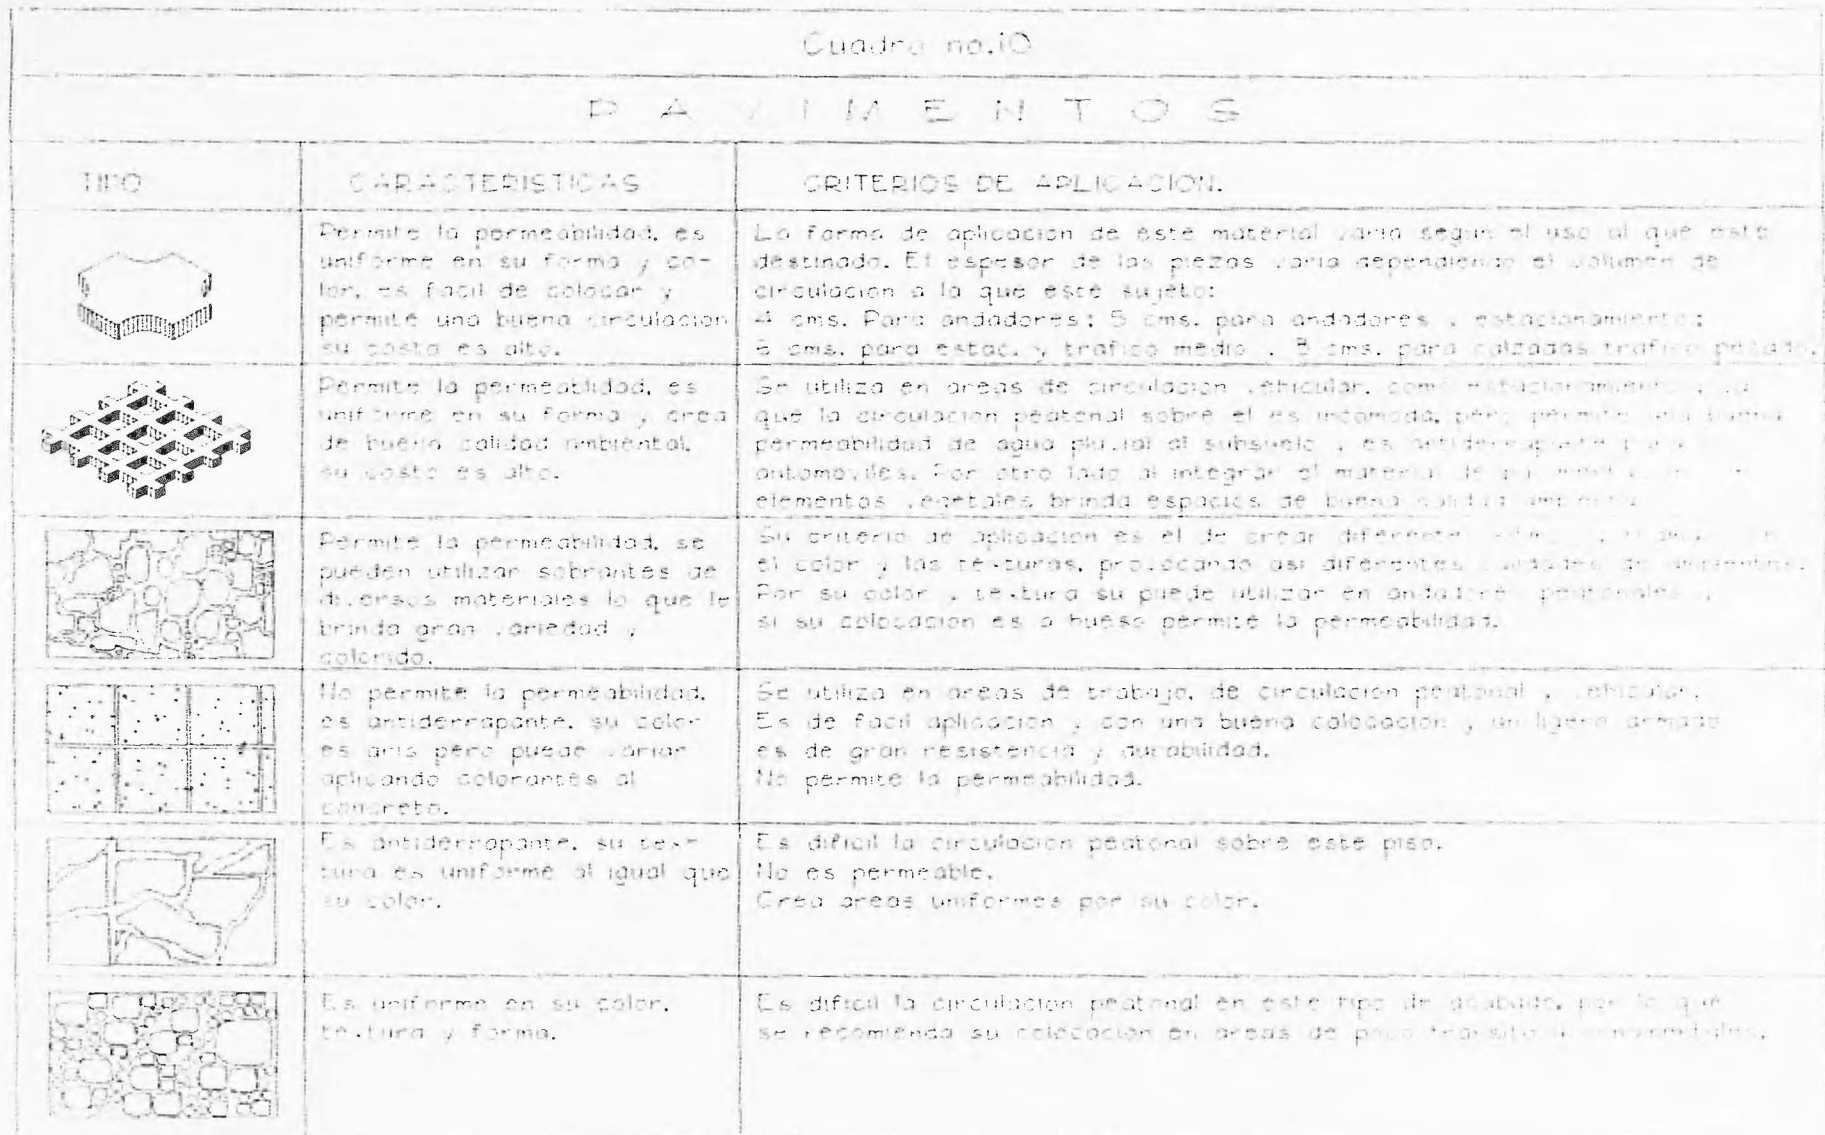 Cuadro no.10
PAVIMENTOS
TIPO
CARACTERISTICAS
CRITERIOS DE APLICACION.
Permite la permeabilidad, es
uniforme en su forma y co-
lor, es facil de colocar y
permite una buena circulacion
su costo es alto.
La forma de aplicacion de este material varia segun el uso al que este
destinado. El espesor de las piezas varia dependiendo el volumen de
circulacion a la que este sujeto:
4 cms. Para andadores; 5 cms. para andadores y estacionamiento;
cms. para estac. y trafico medio y 8 cms. para calzadas trafico pesado.
Permite la permeabilidad, es
uniforme en su forma y crea
de buena calidad ambiental,
su costo es alto.
Se utiliza en areas de circulacion vehicular, como estacionamiento, ya
que la circulacion peatonal sobre el es incomoda, pero permite una buena
permeabilidad de agua pluvial al subsuelo y es antiderrapante para
automoviles. Por otro lado al integrar el material de
elementos vegetales brinda espacios de buena calidad ambiental.
Permite la permeabilidad, se
pueden utilizar sobrantes de
diversos materiales lo que le
brinda gran variedad y
colorido.
Su criterio de aplicacion es el de crear diferentes
el color y las texturas, provocando asi diferentes calidades de ambientes.
Por su color y textura su puede utilizar en andadores peatonales y
si su colocacion es a hueso permite la permeabilidad.
No permite la permeabilidad,
es antiderrapante, su color
es gris pero puede variar
aplicando colorantes al
concreto.
Se utiliza en areas de trabajo, de circulacion peatonal y vehicular.
Es de facil aplicacion y con una buena colocacion y un ligero armado
es de gran resistencia y durabilidad.
No permite la permeabilidad.
Es antiderrapante, su tex-
tura es uniforme al igual que
su color.
Es dificil la circulacion peatonal sobre este piso.
No es permeable.
Crea areas uniformes por su color.
Es uniforme en su color,
textura y forma.
Es dificil la circulacion peatonal en este tipo de acabado, por lo que
se recomienda su colocacion en areas de poco transito u ornamentales.